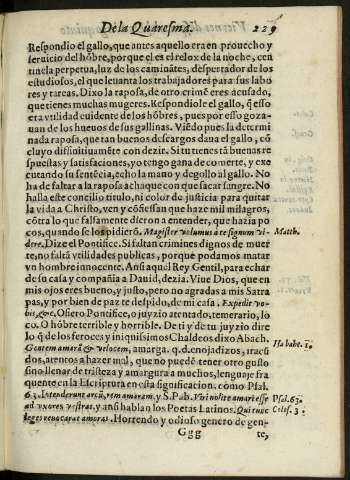 De la Quaresma. 229
Respondio el gallo, que antes aquello era en prouecho y
seruicio del hõbre, porque el es el relox de la noche, cen
tinela perpetua, luz de los caminãtes, despertador de los
estudiosos, el que leuanta los trabajadores para sus labo
res y tareas. Dixo la raposa, de otro crimẽ eres acusado,
que tienes muchas mugeres. Respondiole el gallo, q̃ esso
era vtilidad cuidente de los hõbres, pues por esso goza-
uan de los hueuos de sus gallinas. Viẽdo pues la determi
nada raposa, que tan buenos descargos daua el gallo, cõ
cluyo diffinitiuamẽte con dezir. Si tu tienes tã buenas re
spuestas y satisfaciones, yo tengo gana de comerte, y exe
cutando su sentẽcia, echo la mano y degollo al gallo. No
ha de faltar a la raposa achaque con que sacar sangre. No
halla este concilio titulo, ni color de justicia para quitar
la vida a Christo, ven y cõfiessan que haze mil milagros,
cõtra lo que falsamente dieron a entender, que hazia po
cos, quando se los pidierõ. Magister volumus a te signum vi-
dere. Dize el Pontifice. Si faltan crimines dignos de muer
te, no faltã vtilidades publicas, porque podamos matar
vn hombre innocente. Ansi aquel Rey Gentil, para echar
de su casa y compañia a Dauid, dezia. Viue Dios, que en
mis ojos eres bueno, y justo, pero no agradas a mis Satra
pas, y por bien de paz te despido, de mi casa. Expedit vo-
bis, &c. O fiero Pontifice, o juyzio atentado, temerario, lo
co. O hõbre terrible y horrible. De ti y de tu juyzio dire
lo q̃ de los feroces y iniquissimos Chaldeos dixo Abach.
Gentem amarã & velocem, amarga. q. d. enojadizos, traeci
dos, atentos a hazer mal, que no puedẽ tener otro gusto
sino llenar de tristeza y amargura a muchos, lenguaje fra
quente en la Escriptura en esta significacion. como Psal.
63. Intenderunt arcũ, rem amaram. y S. Pab. Viri nolite amari esse
ad vxores vestras. y ansi hablan los Poetas Latinos. Qui tunc
leges reuocarat amoras. Horrendo y odioso genero de gen-
Ggg te,
Matth.
Hababc. 1.
Psal. 63.
Colos. 3.